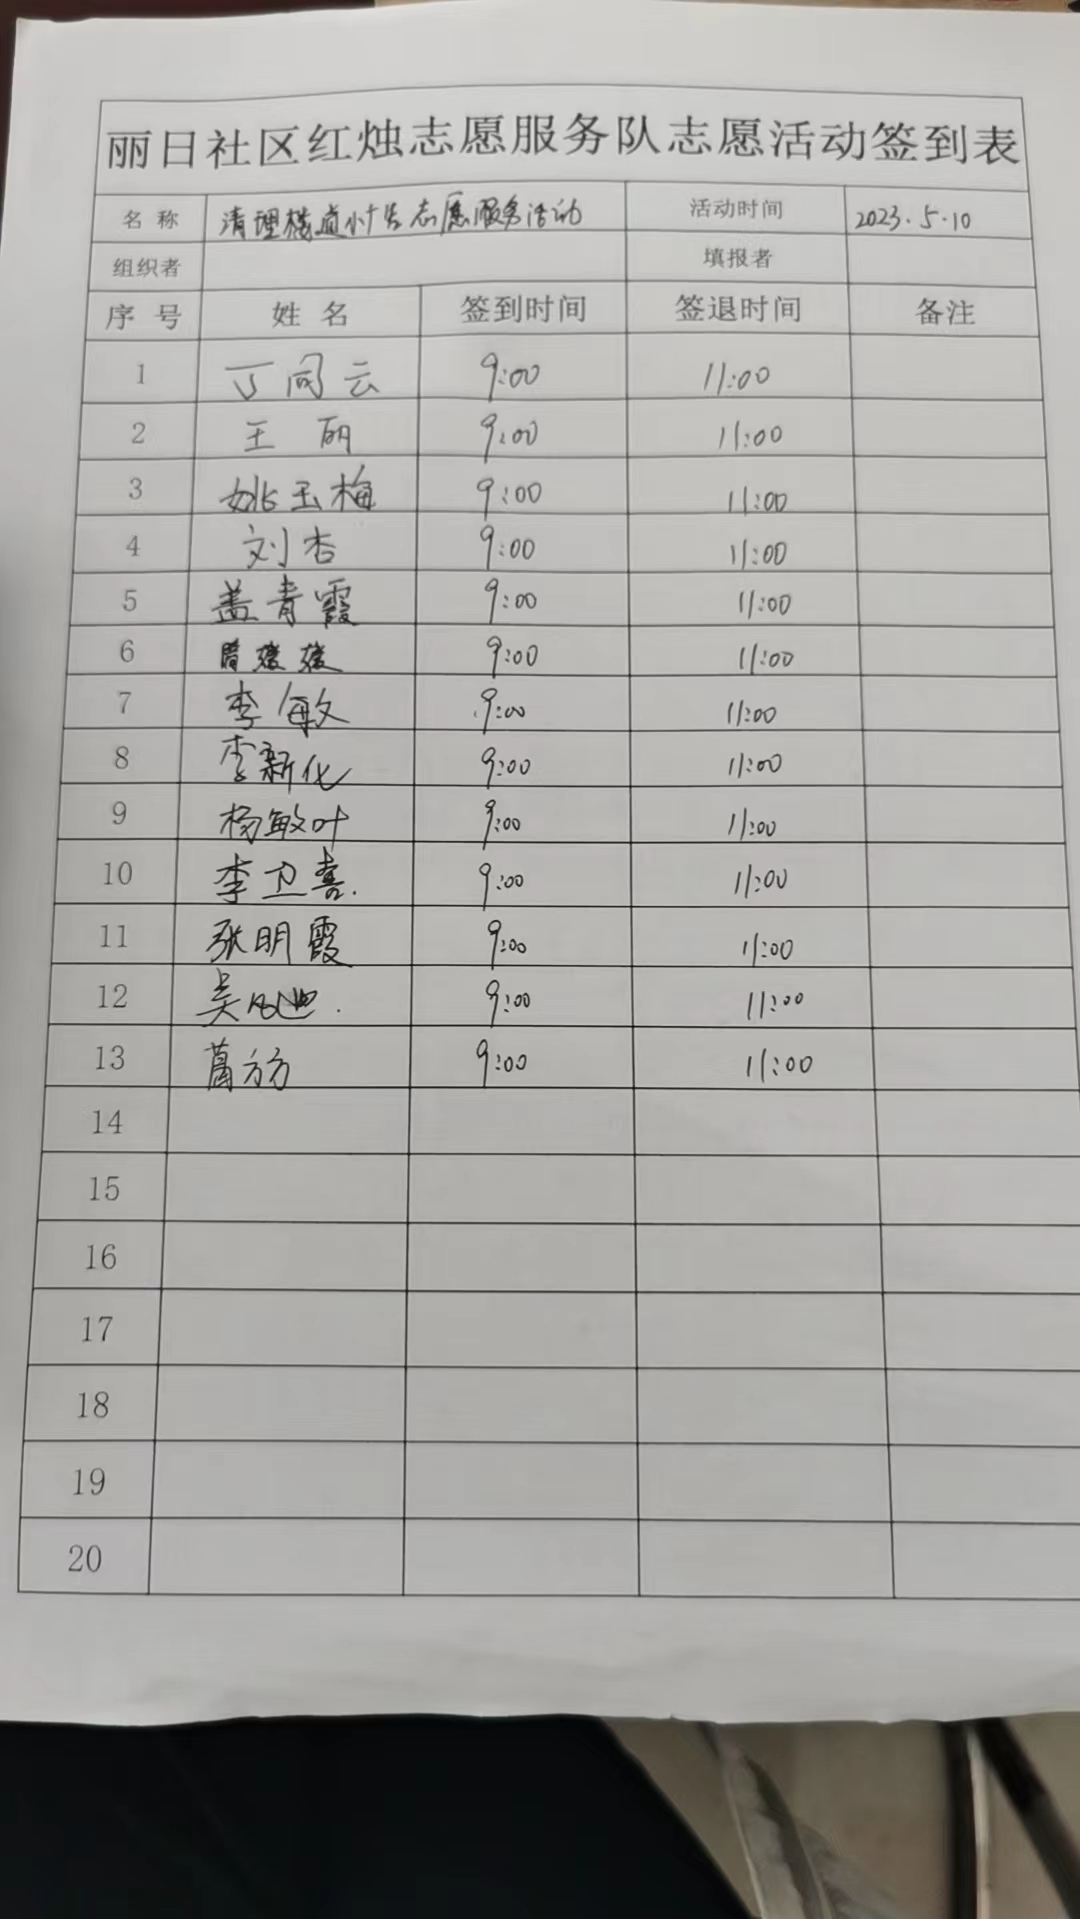 丽日社区红烛志愿服务队志愿活动签到表
名 称 清理楼道小广告志愿服务活动 活动时间 2023.5.10
组织者 填报者
序 号 姓 名 签到时间 签退时间 备注
1 丁同云 9:00 11:00
2 王 丽 9:00 11:00
3 姚玉梅 9:00 11:00
4 刘杏 9:00 11:00
5 盖青霞 9:00 11:00
6 9:00 11:00
7 李敏 9:00 11:00
8 李新化 9:00 11:00
9 杨敏叶 9:00 11:00
10 李卫喜. 9:00 11:00
11 张明霞 9:00 11:00
12 吴 9:00 11:00
13 葛方方 9:00 11:00
14
15
16
17
18
19
20